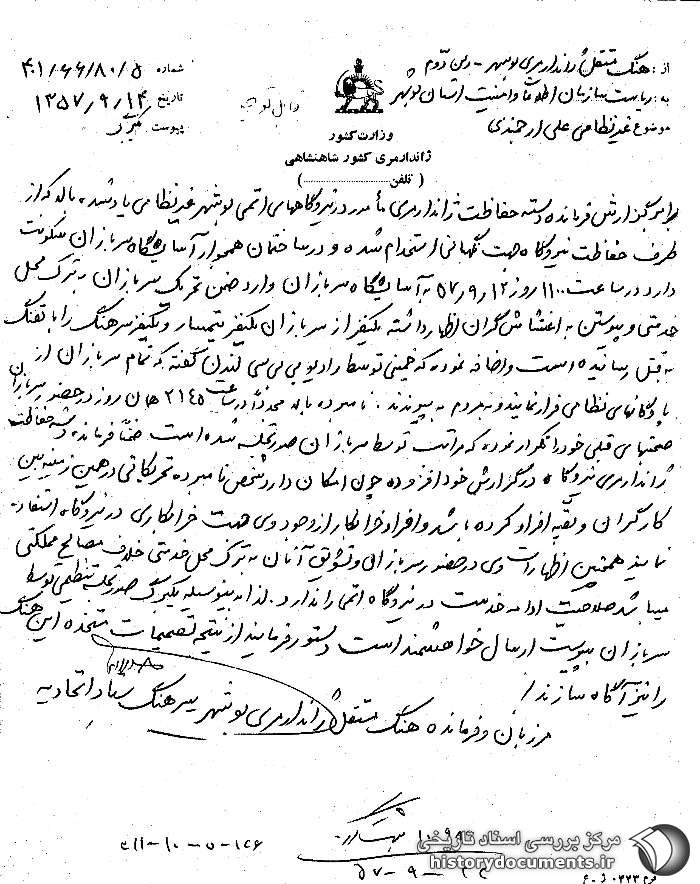 از: هنگ مستقل ژاندارمری بوشهر - رکن دوم
به: ریاست سازمان اطلاعات و امنیت استان بوشهر
موضوع غیرنظامی علی ارجمندی
شماره ۴۰۱/۶۶/۸۰/۵
تاریخ ۱۳۵۷/۹/۱۴
پیوست یکبرگ
وزارت کشور
ژاندارمری کشور شاهنشاهی
( تلفن.................... )
برابر گزارش فرمانده دسته حفاظت ژاندارمری مأمور در نیروگاههای اتمی بوشهر غیرنظامی یاد شده بالا که از
طرف حفاظت نیروگاه جهت نگهبانی استخدام شده و در ساختمان همجوار آسایشگاه سربازان سکونت
دارد در ساعت ۱۱۰۰ روز ۵۷/۹/۱۲ به آسایشگاه سربازان وارد ضمن تحریک سربازان به ترک محل
خدمتی و پیوستن به اغتشاشگران اظهار داشته یکنفر از سربازان یکنفر تیمسار و یکنفر سرهنگ را با تفنگ
به قتل رسانیده است و اضافه نموده که خمینی توسط رادیو بی بی سی لندن گفته که تمام سربازان از
پادگانهای نظامی فرار نمایند و به مردم به پیوندند. نامبرده بالا مجدداً در ساعت ۲۱۴۵ همان روز در حضور سربازان
صحبتهای قبلی خود را تکرار نموده که مراتب توسط سربازان صورتجلسه شده است ضمناً فرمانده دسته حفاظت
ژاندارمری نیروگاه در گزارش خود افزوده چون امکان دارد شخص نامبرده تحریکاتی در همین زمینه بین
کارگران و بقیه افراد کرده باشد و افراد خرابکار از وجود وی جهت خرابکاری در نیروگاه استفاده
نمایند همچنین اظهارات وی در حضور سربازان و تشویق آنان به ترک محل خدمتی خلاف مصالح مملکتی
میباشد صلاحیت ادامه خدمت در نیروگاه اتمی را ندارد. لذا بدینوسیله یکبرگ صورتجلسه تنظیمی توسط
سربازان بپیوست ارسال خواهشمند است دستور فرمایند از نتیجه تصمیمات متخذه این هنگ
را نیز آگاه سازند/
مرزبان و فرمانده هنگ مستقل ژاندارمری بوشهر سرهنگ ستاد اتحادیه
۵۷-۹-۱۴
مرکز بررسی اسناد تاریخی
historydocuments.ir